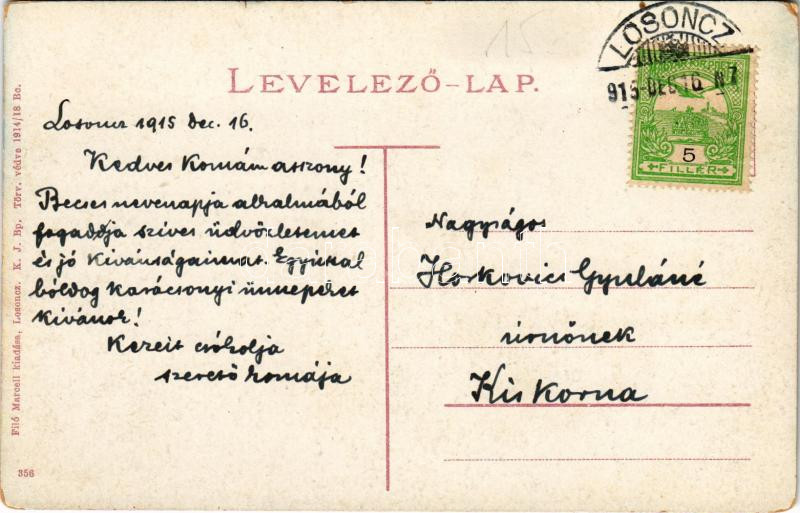 15
LOSONCZ
915 DEC 16 N7
LEVELEZŐ-LAP.
5
FILLÉR
Losonc 1915 dec. 16.
Kedves Komámasszony!
Becses nevenapja alkalmából
fogadja szives üdvözletemet
és jó kívánságaimat. Egyúttal
bóldog karácsonyi ünnepeket
kívánok!
Kezeit csókolja
szerető komája
Nagyságos
Horkovics Gyuláné
úrnőnek
Kiskorna
Filó Marcell kiadása, Losoncz. K. J. Bp. Törv. védve 1914/18 Bo.
356